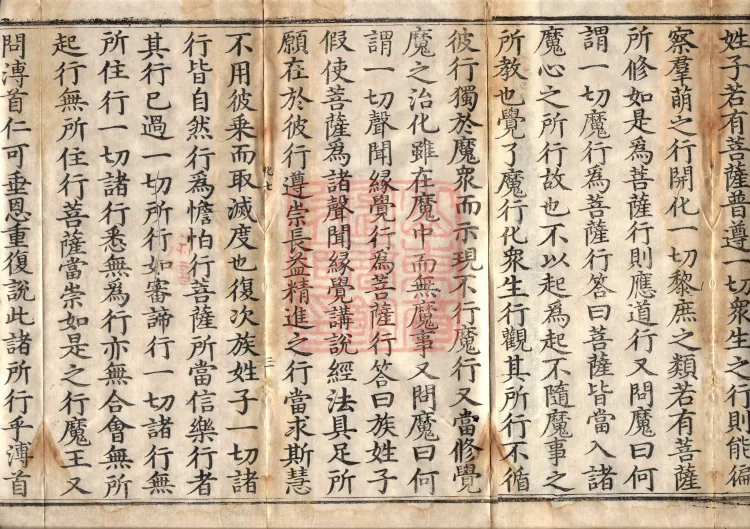 姓子若有菩薩普遵一切衆生之行則能徧
察羣萌之行開化一切黎庶之類若有菩薩
所修如是為菩薩行則應道行又問魔曰何
謂一切魔行為菩薩行答曰菩薩皆當入諸
魔心之所行故也不以起為起不隨魔事之
所教也覺了魔行化衆生行觀其所行不循
彼行獨於魔衆而示現不行魔行又當修覺
魔之治化雖在魔中而無魔事又問魔曰何
謂一切聲聞緣覺行為菩薩行答曰族姓子
假使菩薩為諸聲聞緣覺講說經法具足所
願在於彼行遵崇長益精進之行當求斯慧
不用彼乘而取滅度也復次族姓子一切諸
行皆自然行為憺怕行菩薩所當信樂行者
其行已過一切所行如審諦行一切諸行無
所住行一切諸行悉無為行亦無合會無所
起行無所住行菩薩當崇如是之行魔王又
問溥首仁可垂恩重復說此諸所行乎溥首